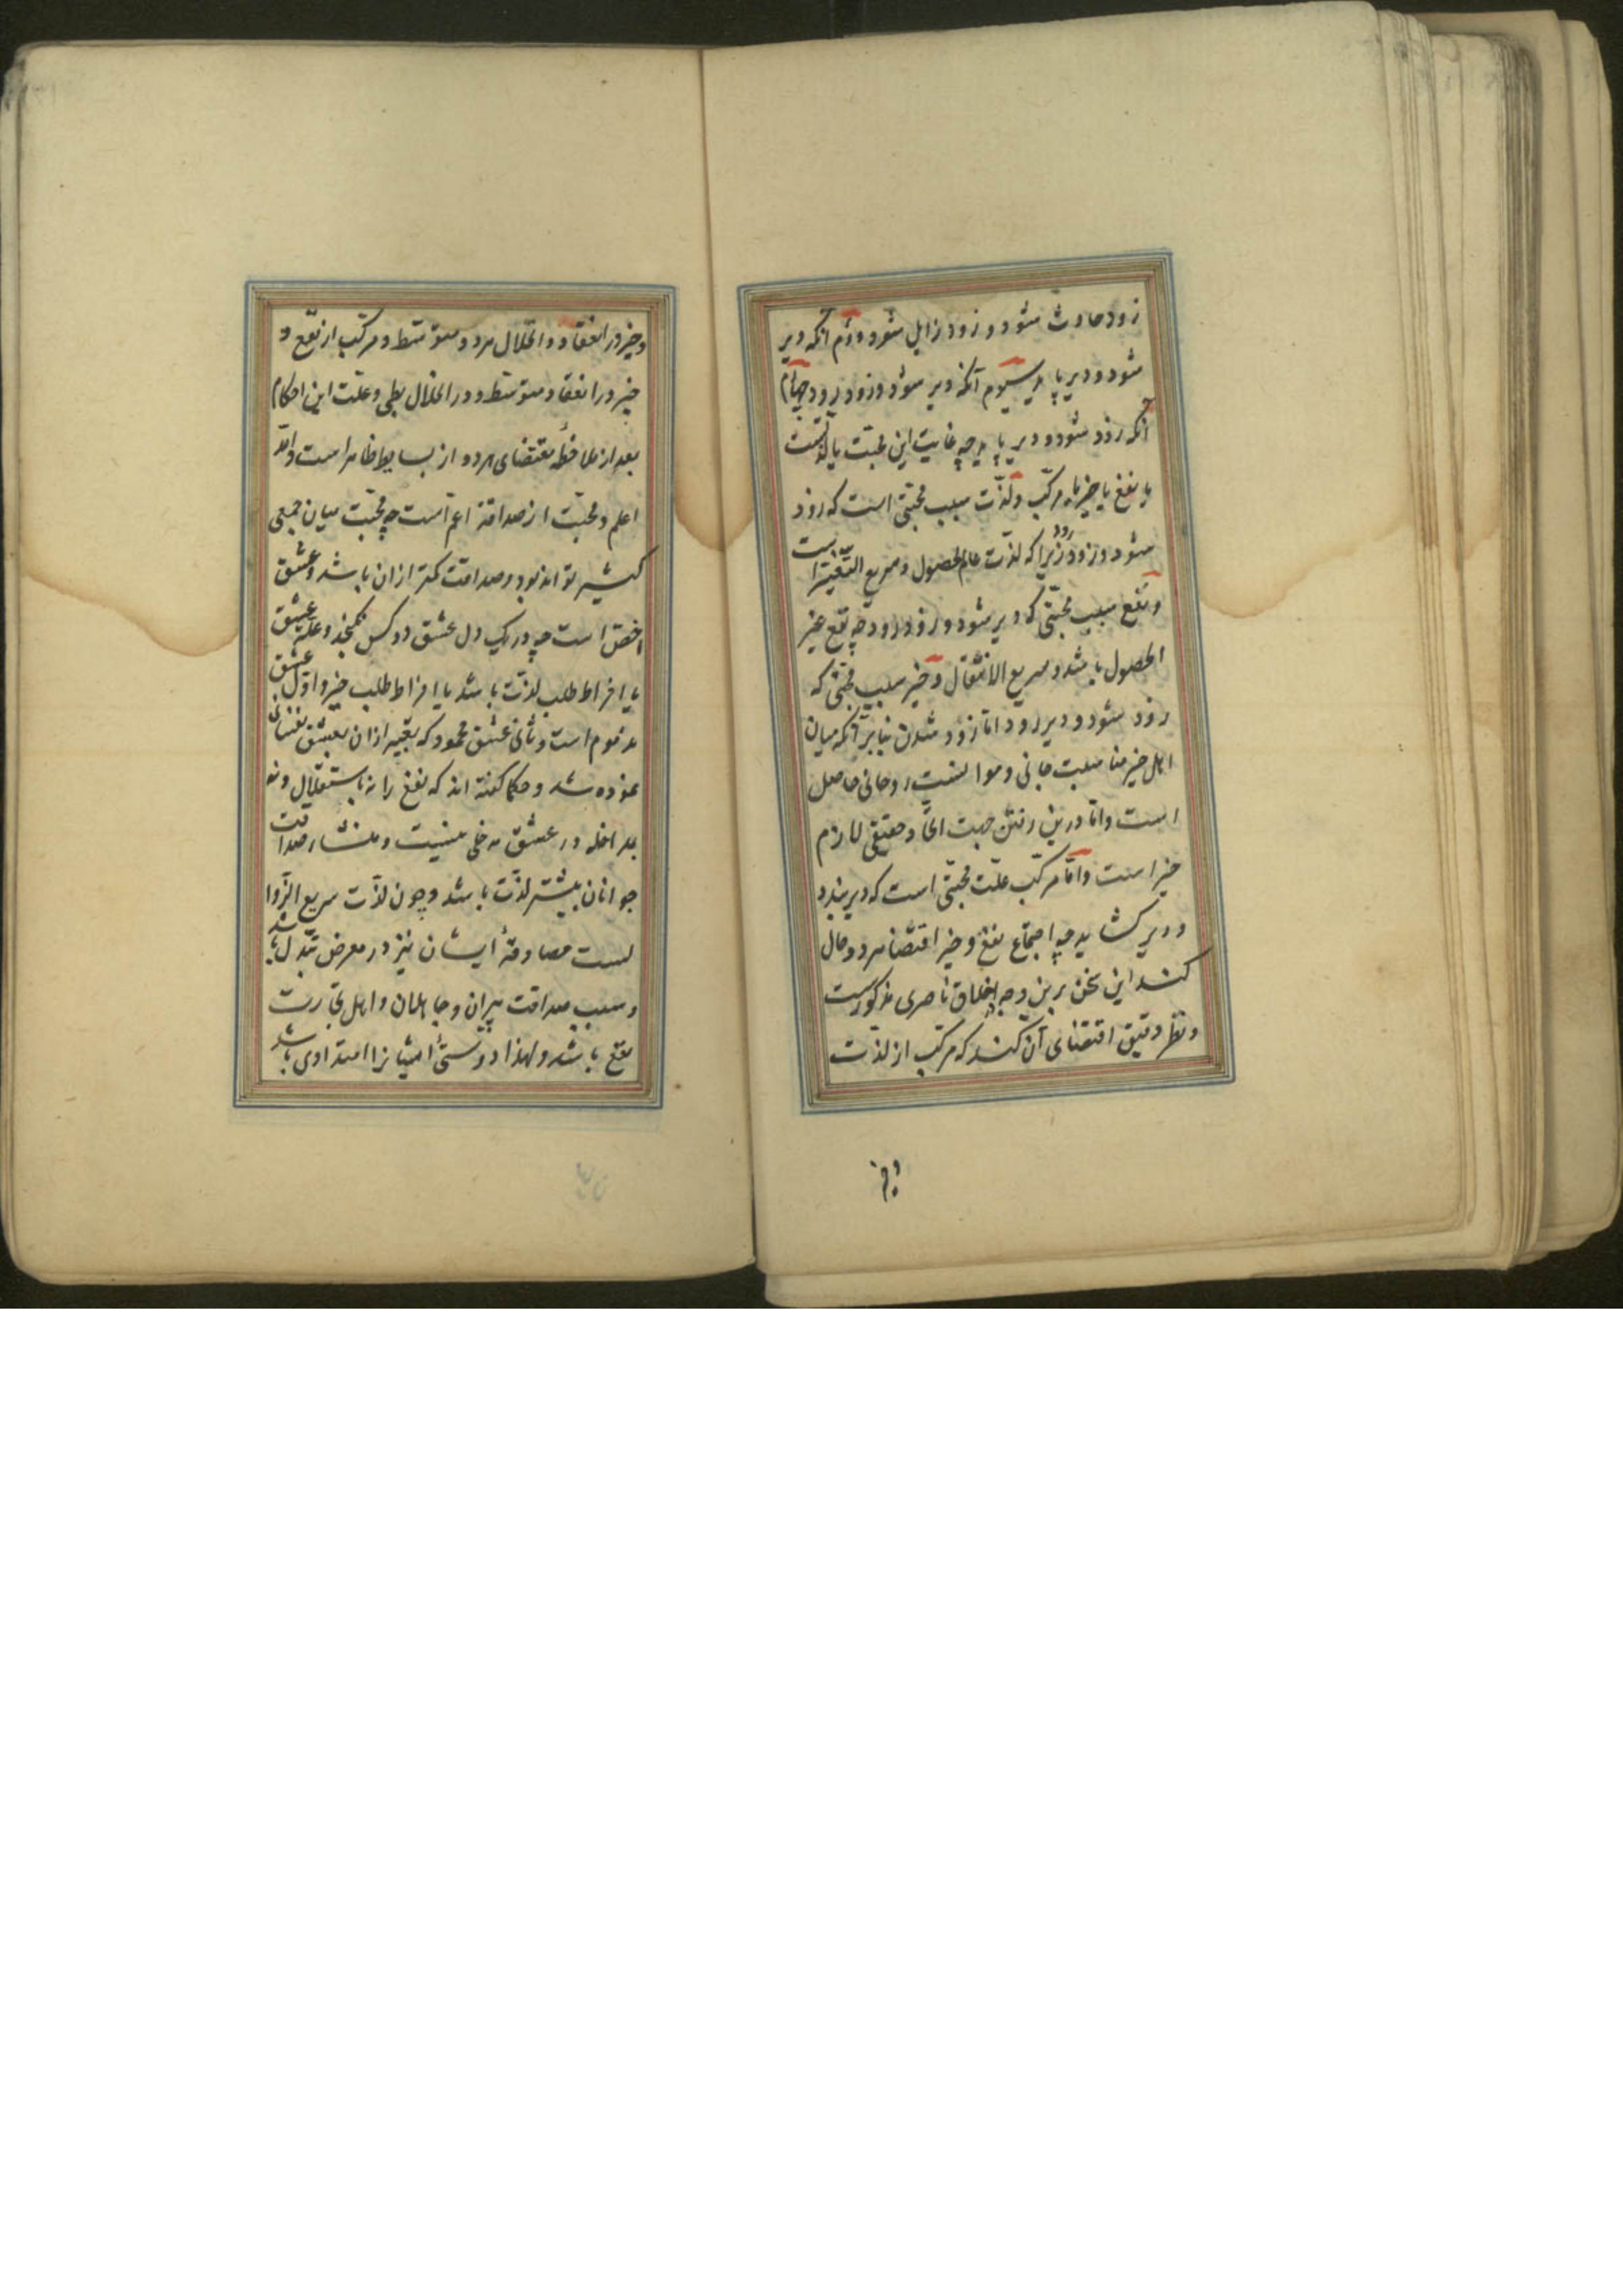 زود حادث شود و زود زایل شود دوم آنکه دیر
شود و دیر پاید سیوم آنکه دیر شود و زود رود چهارم
آنکه زود شود و دیر پاید چه غایت این محبت یا لذتست
یا نفع یا خیر یا مرکب و لذت سبب محبتی است که زود
شود و زود رود زیرا که لذت عام الحصول و سریع التغیر است
و نفع سبب محبتی که دیر شود و زود رود چه نفع عزیز
الحصول باشد و سریع الانتقال و خیر سبب محبتی که
زود شود و دیر رود اما زود شدن بنابر آنکه میان
اهل خیر مناسبت جانی و موانست روحانی حاصل
است و اما دیر رفتن جهت اتحاد حقیقی لازم
خیر است و اما مرکب علت محبتی است که دیر بندد
و دیر گشاید چه اجتماع نفع و خیر اقتضا هر دو حال
کند این سخن برین وجه در اخلاق ناصری مذکور است
و نظر دقیق اقتضای آن کند که مرکب از لذت
و خیر
و خیر در انعقاد و انحلال هر دو متوسط و مرکب از نفع و
خیر در انعقاد متوسط و در انحلال بطی و علت این احکام
بعد از ملاحظه مقتضای هر دو از بسایط ظاهر است والله
اعلم و محبت از صداقت اعم است چه محبت میان جمعی
کثیر تواند بود و صداقت کمتر ازان باشد و عشق
اخص است چه در یک دل عشق دو کس نگنجد و علة عشق
یا افراط طلب لذت باشد یا افراط طلب خیر و اول عشق
مذموم است و ثانی عشق محمود که تعبیر ازان بعشق نفسانی
نموده شد و حکما گفته اند که نفع را نه باستقلال و نه
بمداخله در عشق مدخلی نیست و منشاء صداقت
جوانان بیشتر لذت باشد و چون لذت سریع الزوا
لست مصادقهٔ ایشان نیز در معرض تبدل باشد
و سبب صداقت پیران و جاهلان و اهل تجارت
نفع باشد و لهذا دوستیٔ ایشانرا امتدادی باشد